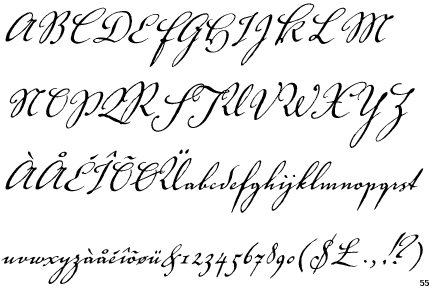 ABCDEFGHIJKLM
NOPQRSTUVWXYZ
ÀÅÉÎÕØÜabcdefghijklmnopqrst
uvwxyzàåéîõøü&1234567890($£.,!?)
55